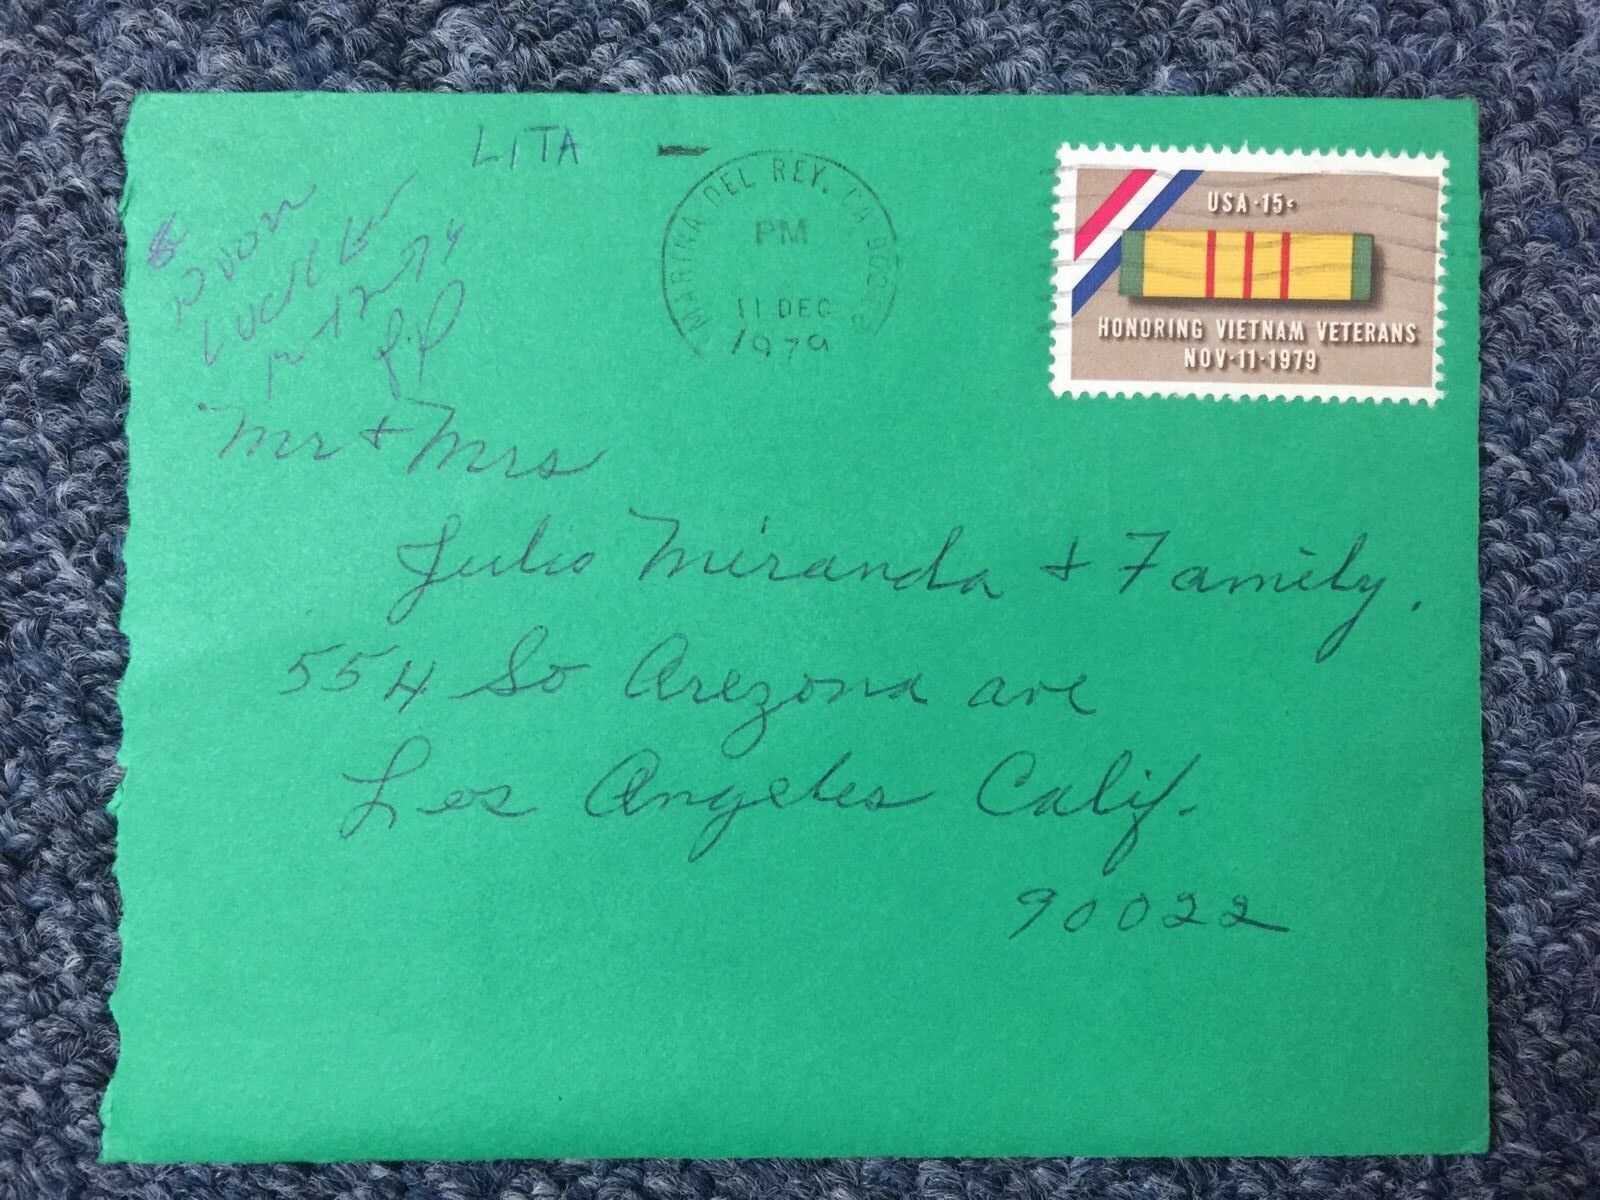 LITA
MARINA DEL REY, CA
PM
11 DEC
1979
USA · 15c
HONORING VIETNAM VETERANS
NOV · 11 · 1979
Mr + Mrs
Julio Miranda + Family.
554 So Arezona ave
Los Angeles Calif.
90022